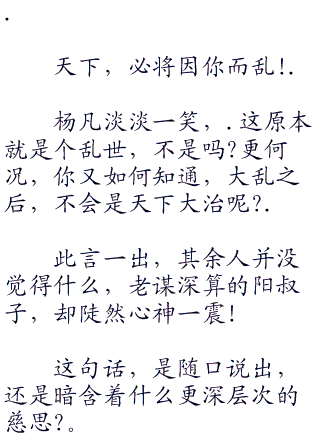 .
天下，必将因你而乱!.
杨凡淡淡一笑，.这原本
就是个乱世，不是吗?更何
况，你又如何知通，大乱之
后，不会是天下大治呢?.
此言一出，其余人并没
觉得什么，老谋深算的阳叔
子，却陡然心神一震!
这句话，是随口说出，
还是暗含着什么更深层次的
慈思?。